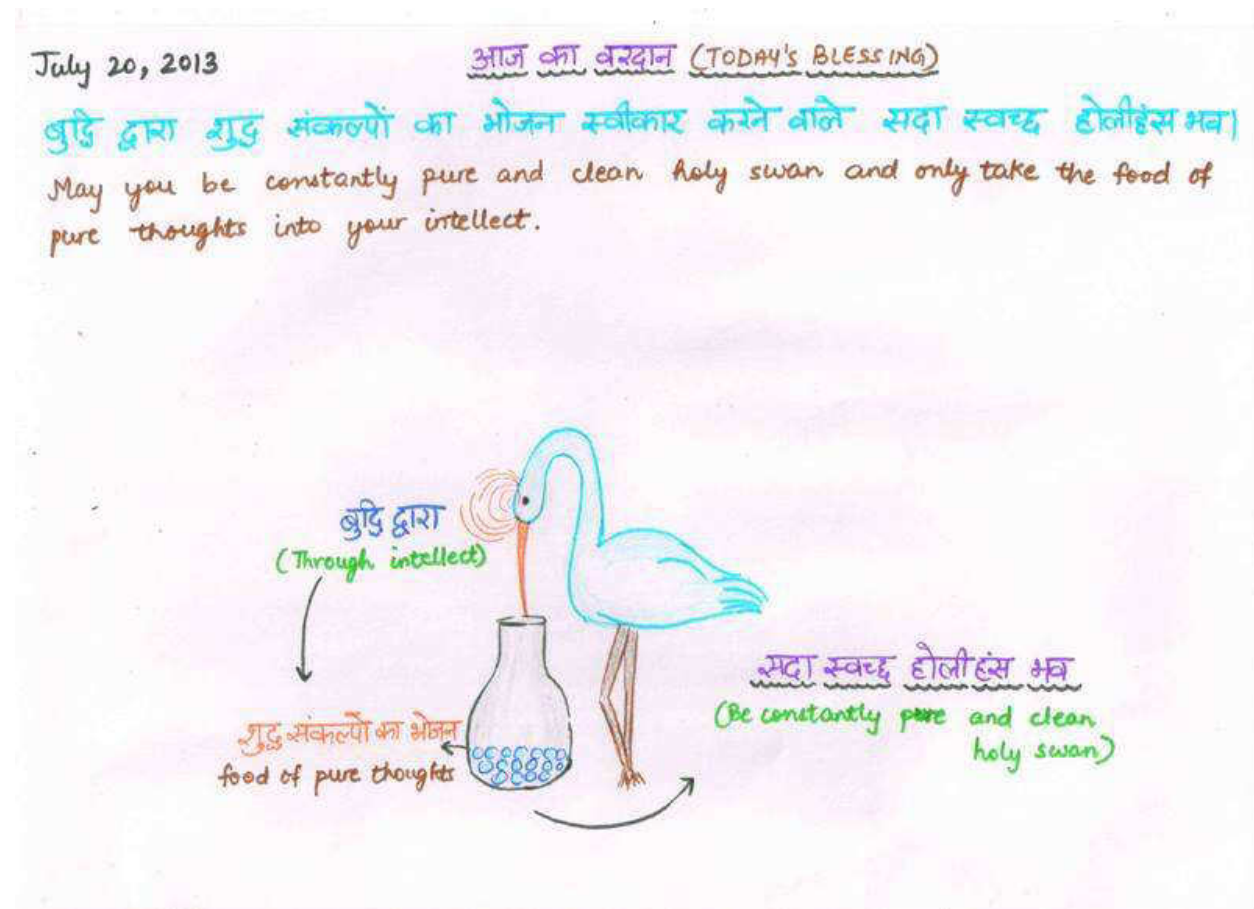 July 20, 2013
आज का वरदान (TODAY'S BLESSING)
बुद्धि द्वारा शुद्ध संकल्पों का भोजन स्वीकार करने वाले सदा स्वच्छ होलीहंस भव।
May you be constantly pure and clean holy swan and only take the food of
pure thoughts into your intellect.
बुद्धि द्वारा
(Through intellect)
शुद्ध संकल्पों का भोजन
food of pure thoughts
सदा स्वच्छ होलीहंस भव
(Be constantly pure and clean
holy swan)